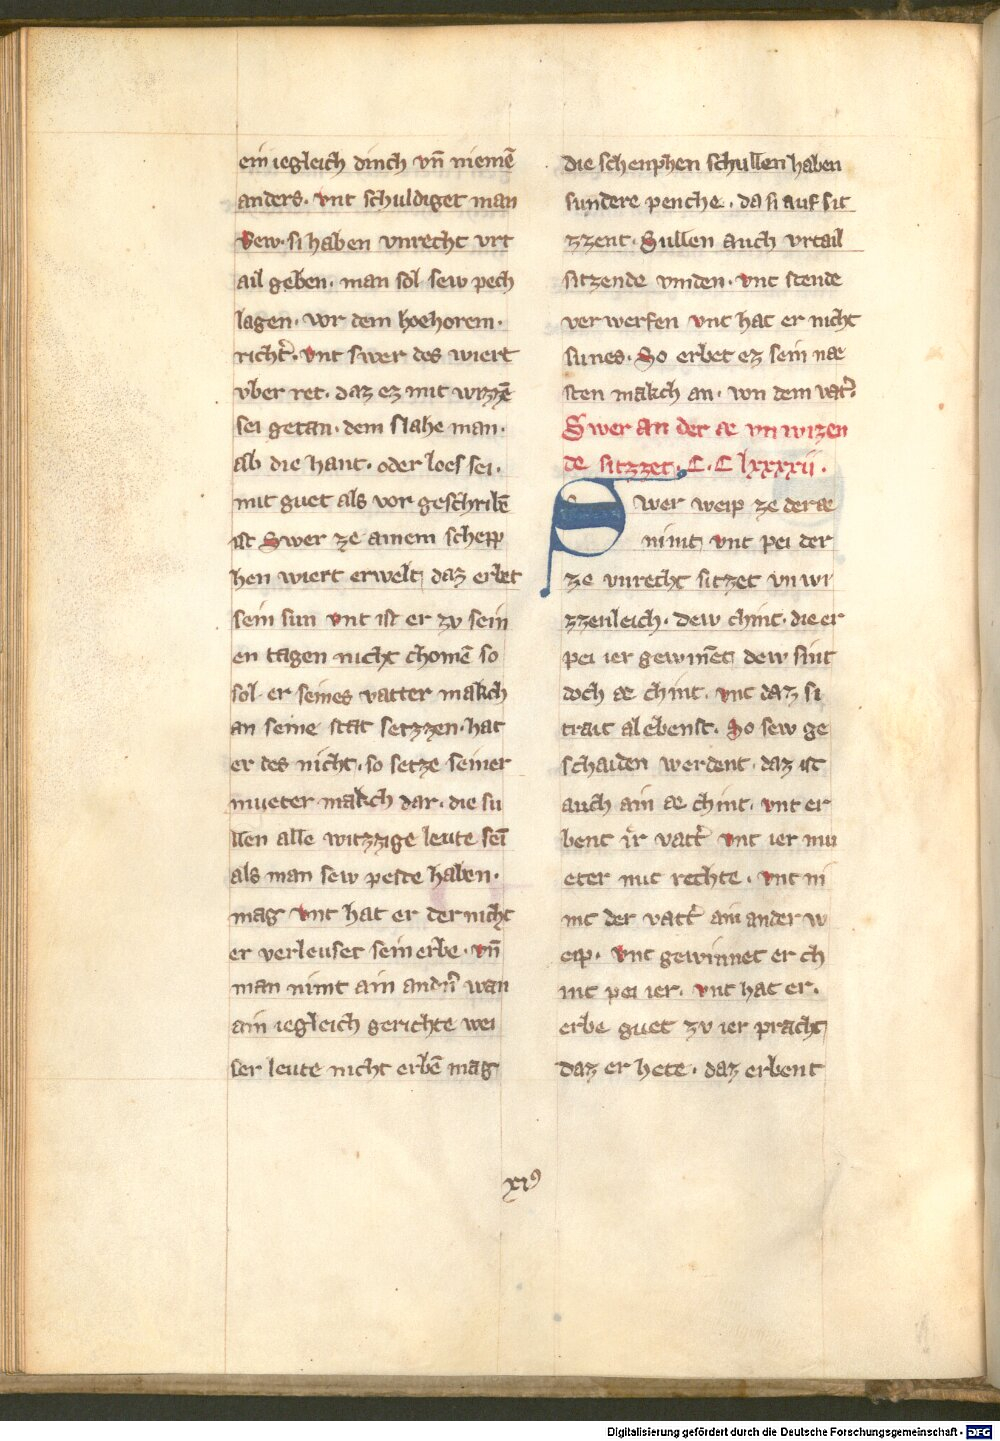 ein iegleich dinch vn̄ niemē
anders. vnt schuldiget man
dew. si haben vnrecht vrt
ail geben. man sol sew pech
lagen. vor dem hoehorem.
richt͛. vnt swer des wiert
vber ret. daz ez mit wizzē
sei getan. dem slahe man.
ab die hant. oder loes sei.
mit guet als vor geschribē
ist Swer ze ainem schepp
hen wiert erwelt daz erbet
sein sun vnt ist er zv sein
en tagen nicht chomē so
sol er seines vatter makch
an seine stat setzzen. hat
er des nicht. so setze seiner
mueter makch dar. die su
llen alle witzzige leute sei
als man sew peste haben.
mag vnt hat er der nicht
er verleuset sein erbe. vn̄
man nimt ain andn͛ wan
ain iegleich gerichte wei
ser leute nicht erbē mag
die schenphen schullen haben
sundere penche. da si auf sit
zzent. Sullen auch vrtail
sitzende vinden. vnt stende
ver werfen vnt hat er nicht
sunes. So erbet ez sein næ
sten makch an. von dem vat͛.
Swer an der æ vn wizen
de sitzzet. C. C lxxxxii.
Swer weip ze der æ
nimt vnt pei der
ze vnrecht sitzet vn wi
zzenleich. dew chint. die er
pei ier gewin̄et dew sint
doch æ chint. vnt daz si
trait alebenst. So sew ge
schaiden werdent. daz ist
auch ain æ chint. vnt er
bent ir vatt͛ vnt ier mu
eter mit rechte. vnt ni
mt der vatt͛ ain ander w
eip. vnt gewinnet er ch
int pei ier. vnt hat er.
erbe guet zv ier pracht
daz er hete. daz erbent
xiꝰ
Digitalisierung gefördert durch die Deutsche Forschungsgemeinschaft - DFG